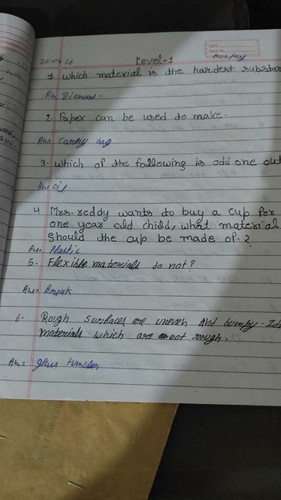 Level-1
Monday
1. Which material is the hardest substan
Ans Diamond.
2. Paper can be used to make.
Ans Carry bag
3. Which of the following is odd one out
Ans Oil
4 Mrs. reddy wants do buy a cup for
one year old child, what material
should the cup be made of.?
Ans= Plastic
5. Flexible materials do not?
Ans= Break
6. Rough surfaces are uneven and bumpy.
materials which are not rough.
Ans= glass tumbler